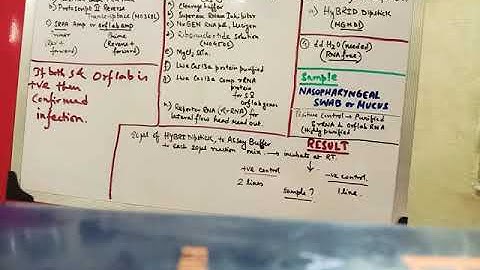 b) Protoscript II Reverse
Transcriptase (M0368L)
c) S RPA Amp or orf1ab amp
inner
(Rev +
forward)
Prime
(Reverse +
forward)
If both S & Orf1ab is
+ve then
Confirmed
infection.
Cleavage buffer
Superase RNase Inhibitor
Ribonucleotide Solution
MgCl2
Lwa Cas13a protein purified
Lwa Cas13a Comp. rRNA
protein
for S &
orf1ab genes
Reporter RNA (RrRNA) for
lateral flow head read out.
a) HyBRID dipstick
(MGHD 1)
dd H2O (needed)
(RNA free)
Sample
NASOPHARYNGEAL
SWAB OR MUCUS
Positive control → Purified
S rRNA & Orf1ab RNA
(Highly purified)
of HYBRIDetect, to Assay Buffer
to each 20µl reaction mix. → incubate at RT.
RESULT
+ve control
↓
2 lines
↓
Sample ?
-ve control.
↓
1 line.